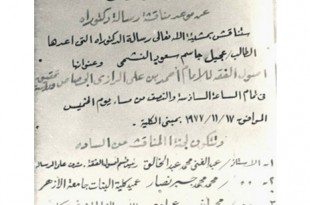 عن موعد مناقشة رسالة دكتوراه
ستناقش بمشيئة الله تعالى رسالة الدكتوراه التى اعدها
الطالب/ عجيل جاسم سعود النشمى وعنوانها
اصول الفقه للامام أحمد بن على الرازى الجصاص
فى تمام الساعة السادسة والنصف من مساء يوم الخميس
الموافق ١٩٧٧/١١/١٧ بمبنى الكلية .
وتتكون لجنة المناقشة من السادة
١ - الاستاذ / عبد الغنى محمد عبد الخالق
٢ - محمد محمد عميد كلية البنات جامعة الأزهر
٣ -